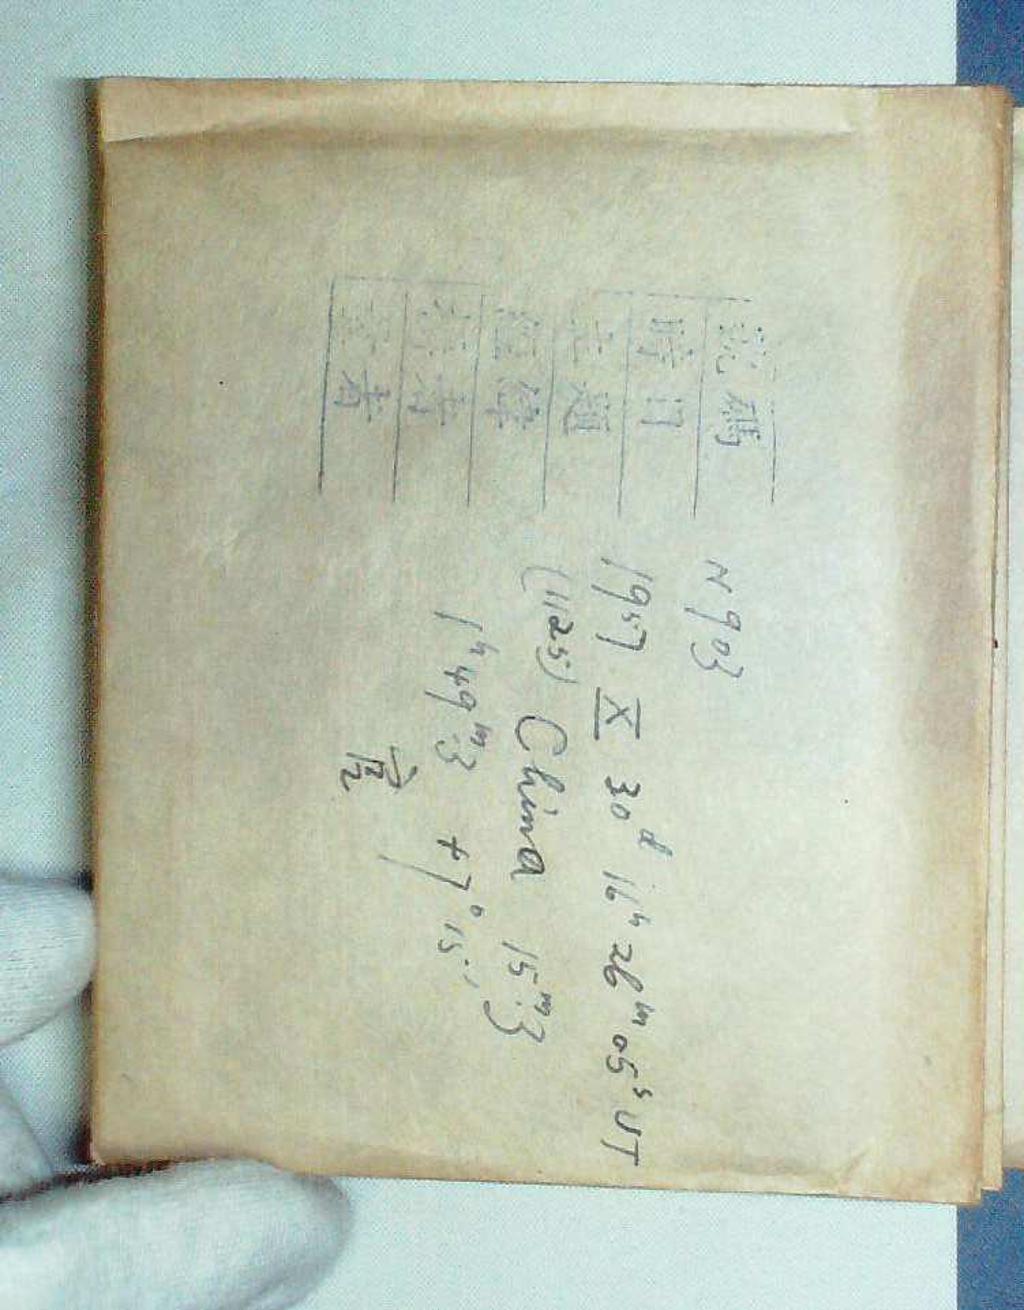 號碼 N903
時日 1957 X 30ᵈ 16ʰ 26ᵐ 05ˢ UT
主題 (1125) China 15ᵐ.3
經緯 1ʰ49ᵐ.3 +7°15'
者